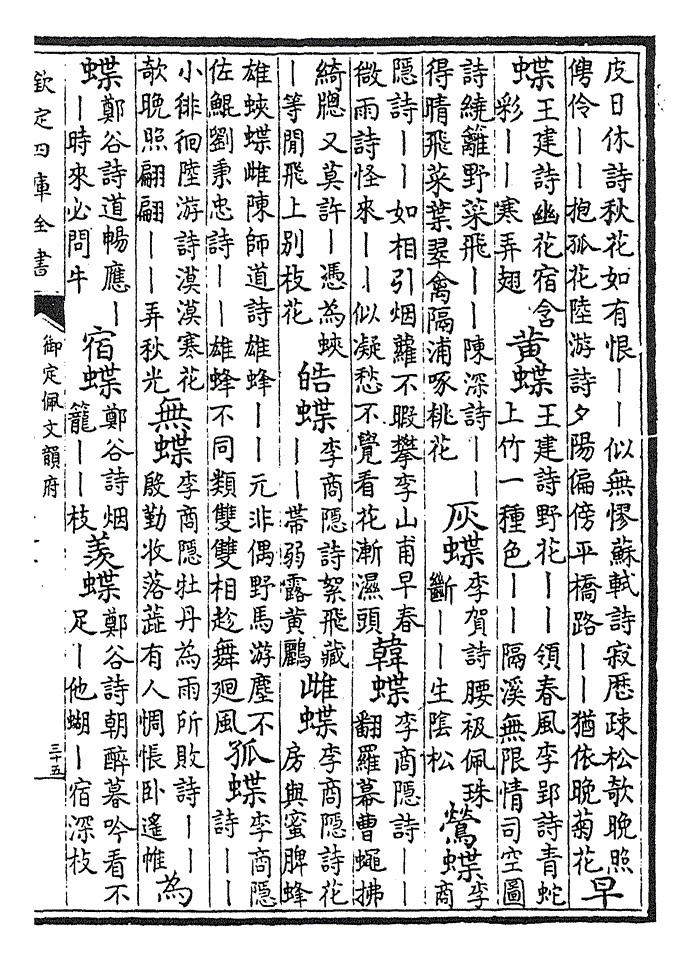 皮日休詩秋花如有恨——似無憀蘇軾詩寂歷疎松欹晚照
俜伶——抱孤花陸游詩夕陽偏傍平橋路——猶依晚菊花
早
蝶
王建詩幽花宿含
彩——寒弄翅
黃蝶
王建詩野花——領春風李郢詩青蛇
上竹一種色——隔溪無限情司空圖
詩繞籬野菜飛——陳深詩——
得晴飛菜葉翠禽隔浦啄桃花
灰蝶
李賀詩腰衱佩珠
斷——生陰松
鶯蝶
李
商
隱詩——如相引烟蘿不暇攀李山甫早春
微雨詩怪來——似凝愁不覺看花漸濕頭
韓蝶
李商隱詩——
翻羅幕曹蠅拂
綺牕又莫許—憑為蛺
—等閒飛上別枝花
皓蝶
李商隱詩絮飛藏
——帶弱露黃鸝
雌蝶
李商隱詩花
房與蜜脾蜂
雄蛺蝶雌陳師道詩雄蜂——元非偶野馬游塵不
佐鯤劉秉忠詩——雄蜂不同類雙雙相趁舞廻風
孤蝶
李商隱
詩——
小徘徊陸游詩漠漠寒花
欹晚照翩翩——弄秋光
無蝶
李商隱牡丹為雨所敗詩——
殷勤收落蘂有人惆悵卧遙帷
為
蝶
鄭谷詩道暢應—
—時來必問牛
宿蝶
鄭谷詩烟
籠——枝
羨蝶
鄭谷詩朝醉暮吟看不
足—他蝴—宿深枝
欽定四庫全書
御定佩文韻府
三十五